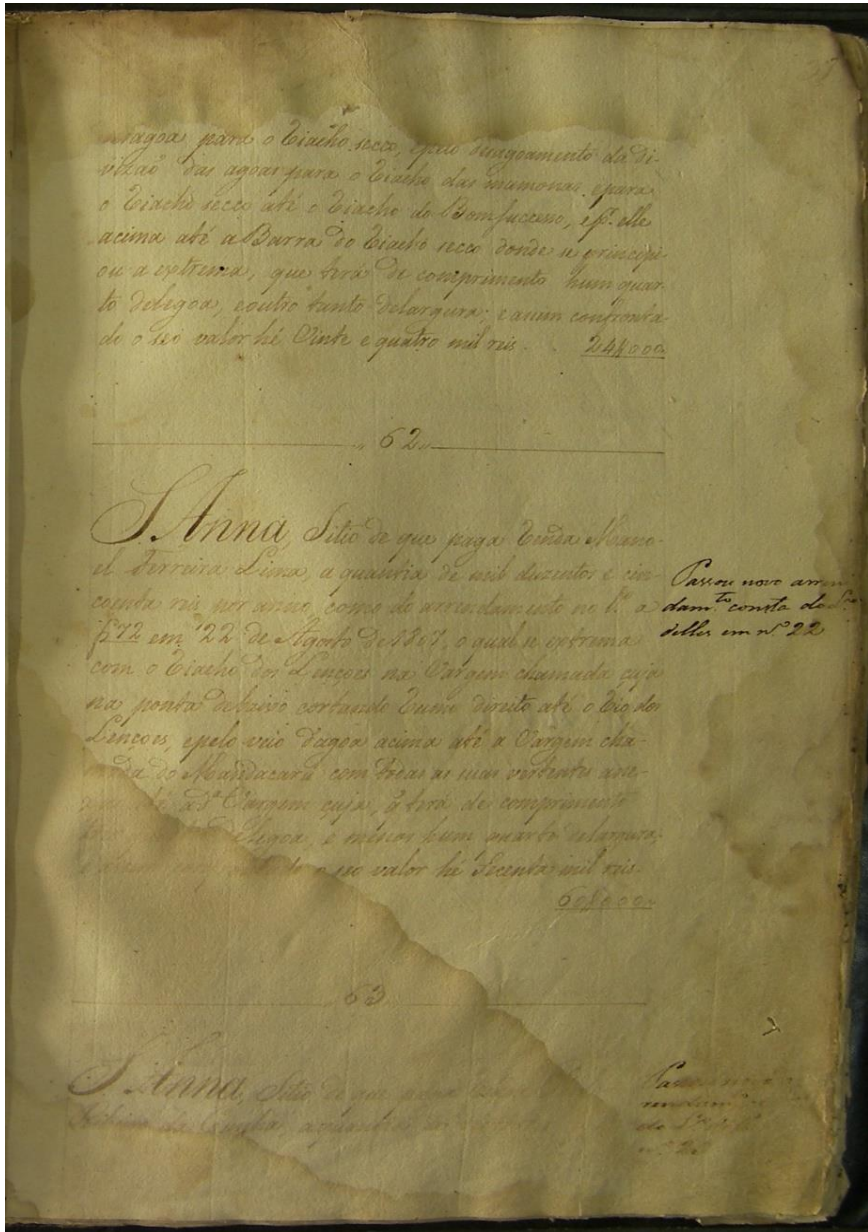 d'agoa para o Riacho secco, e pelo desagoamento da di-
vizaõ das agoas para o Riacho das mamonas, e para
o Riacho secco até o Riacho do Bomsucceso, e pr. elle
acima até a Barra do Riacho secco donde se principi-
ou a extrema, que terá de comprimento hum quar-
to de legoa, e outro tanto de largura; e assim confronta-
do o seo valor hé Vinte e quatro mil reis. 24$000
62
S. Anna, Sitio de que paga Renda Mano-
el Ferreira Lima, a quantia de mil duzentos e cin-
coenta reis por anno, como do arrendamento no L.º a
f.s 72 em 22 de Agosto de 1807, o qual se extrema
com o Riacho dos Lençoes na Vargem chamada cuja
na ponta debaixo cortando Rumo direito até o Rio dos
Lençoes, e pelo veio d'agoa acima até a Vargem cha-
mada do Mandacarú com todas as suas vertentes
até a d.ª Vargem cuja, q̃ terá de comprimento
legoa, e menos hum quarto de largura,
o seo valor hé Secenta mil reis
60$000
Passou novo arren
dam.to consta do L.º
delles em n.º 22
63
S. Anna, Sitio de que paga
Ribeiro da Cunha, a quantia de
Passou novo
rendam.to
do L.º
n.º 2